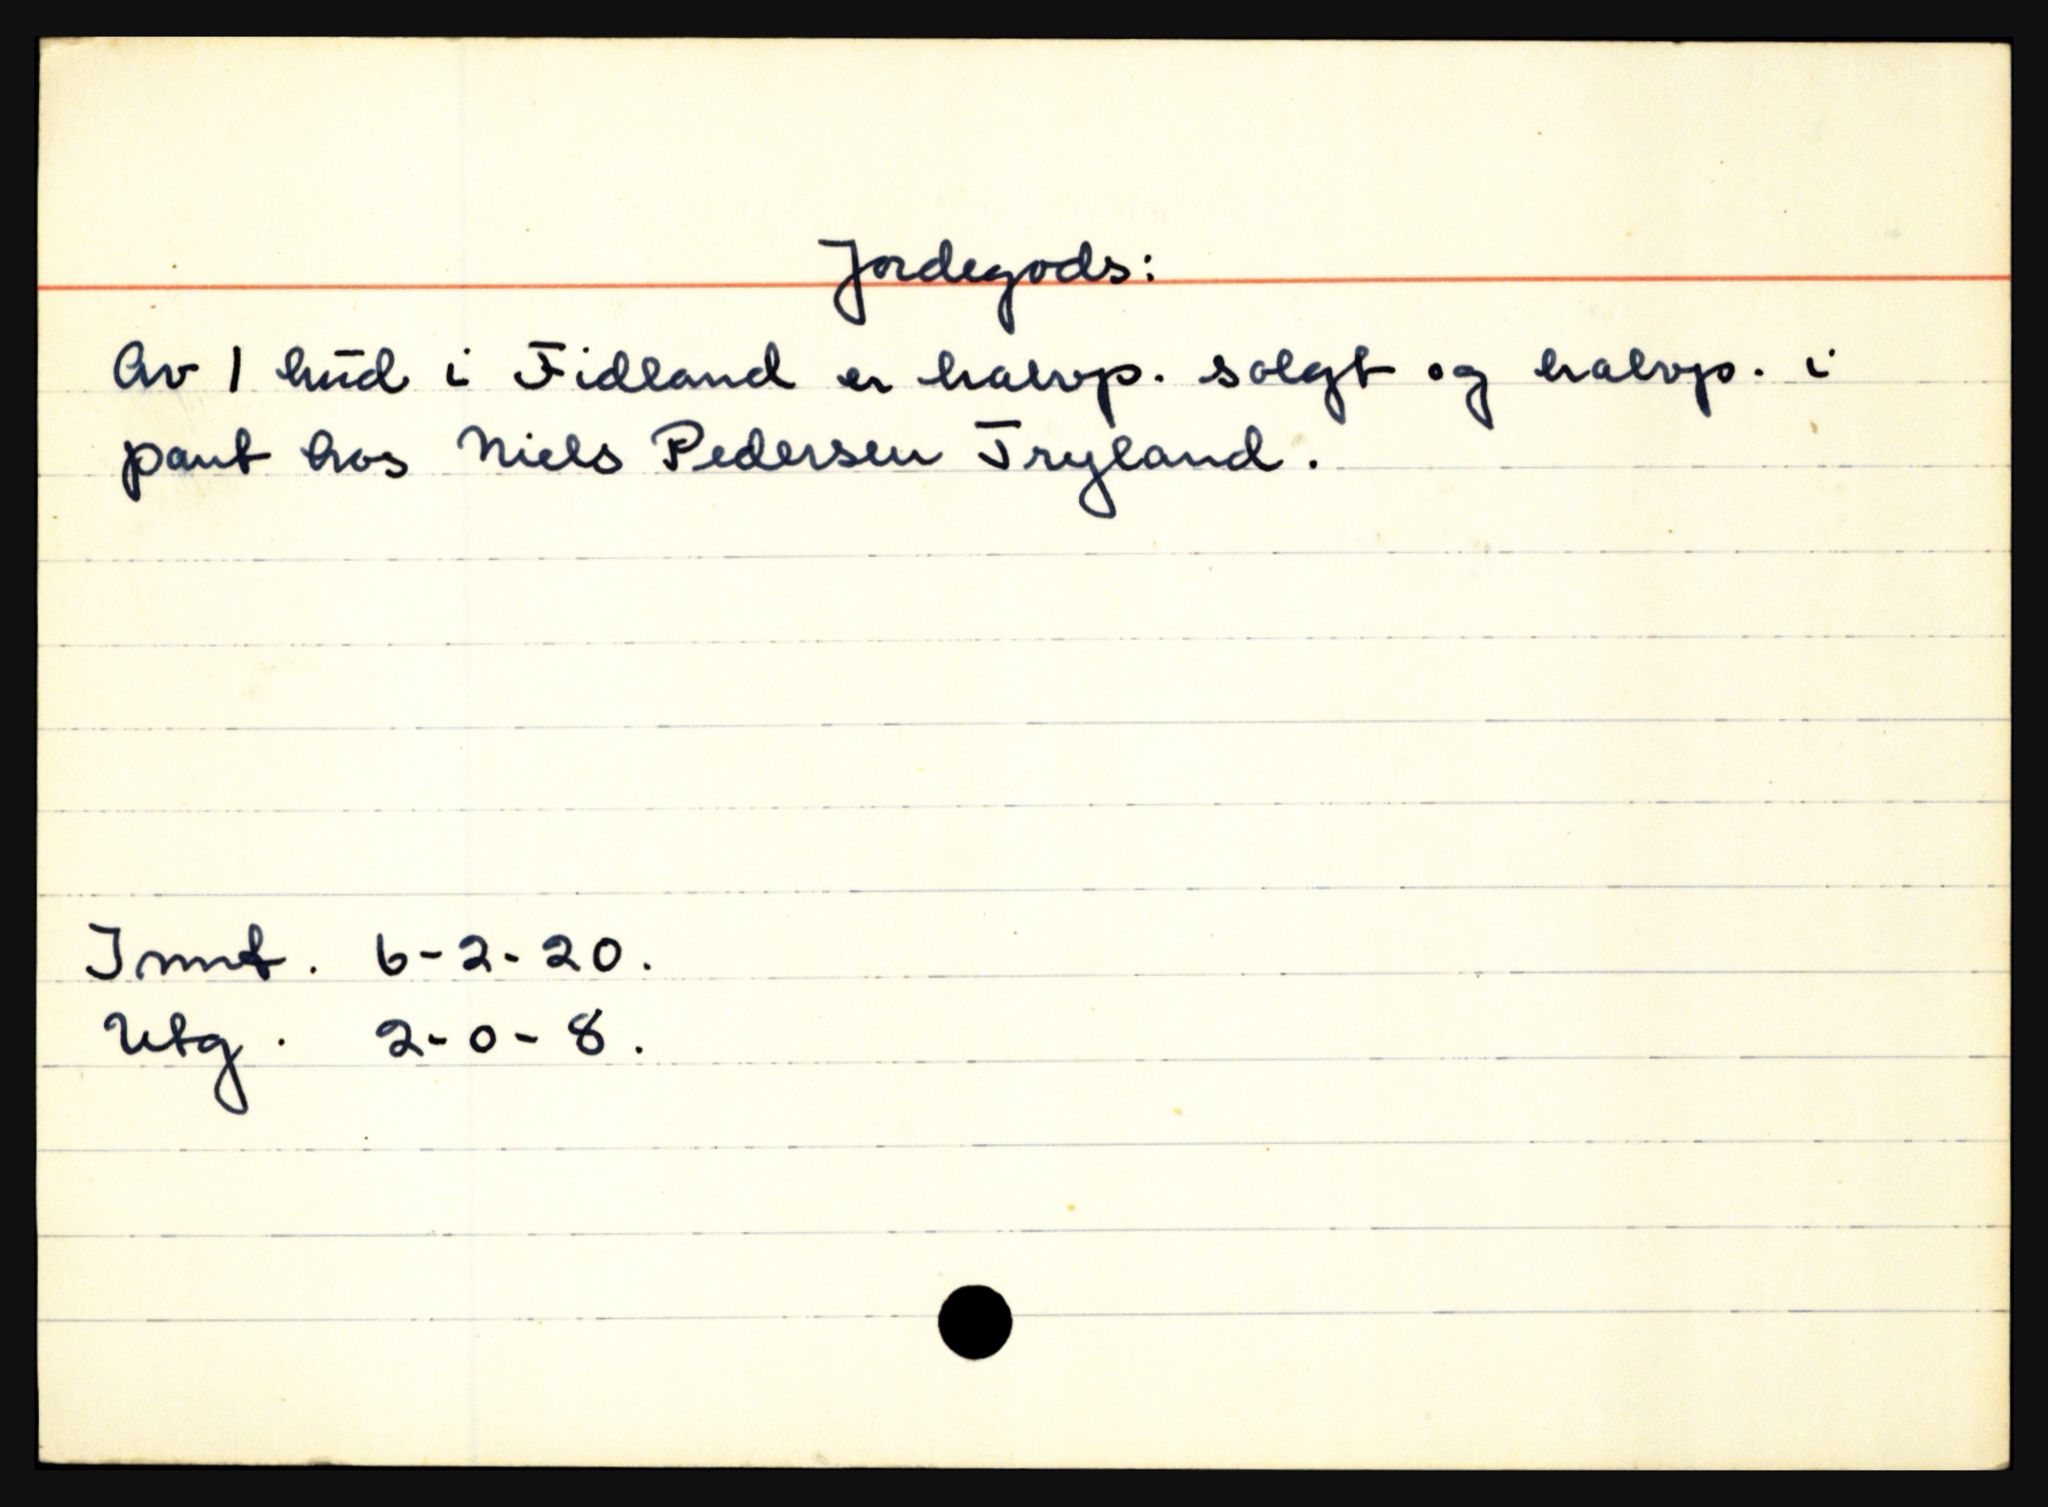 Jordegods:
Av 1 hud i Fidland er halvp. solgt og halvp. i
pant hos Niels Pedersen Tryland.
Innt. 6-2-20.
Utg. 2-0-8.